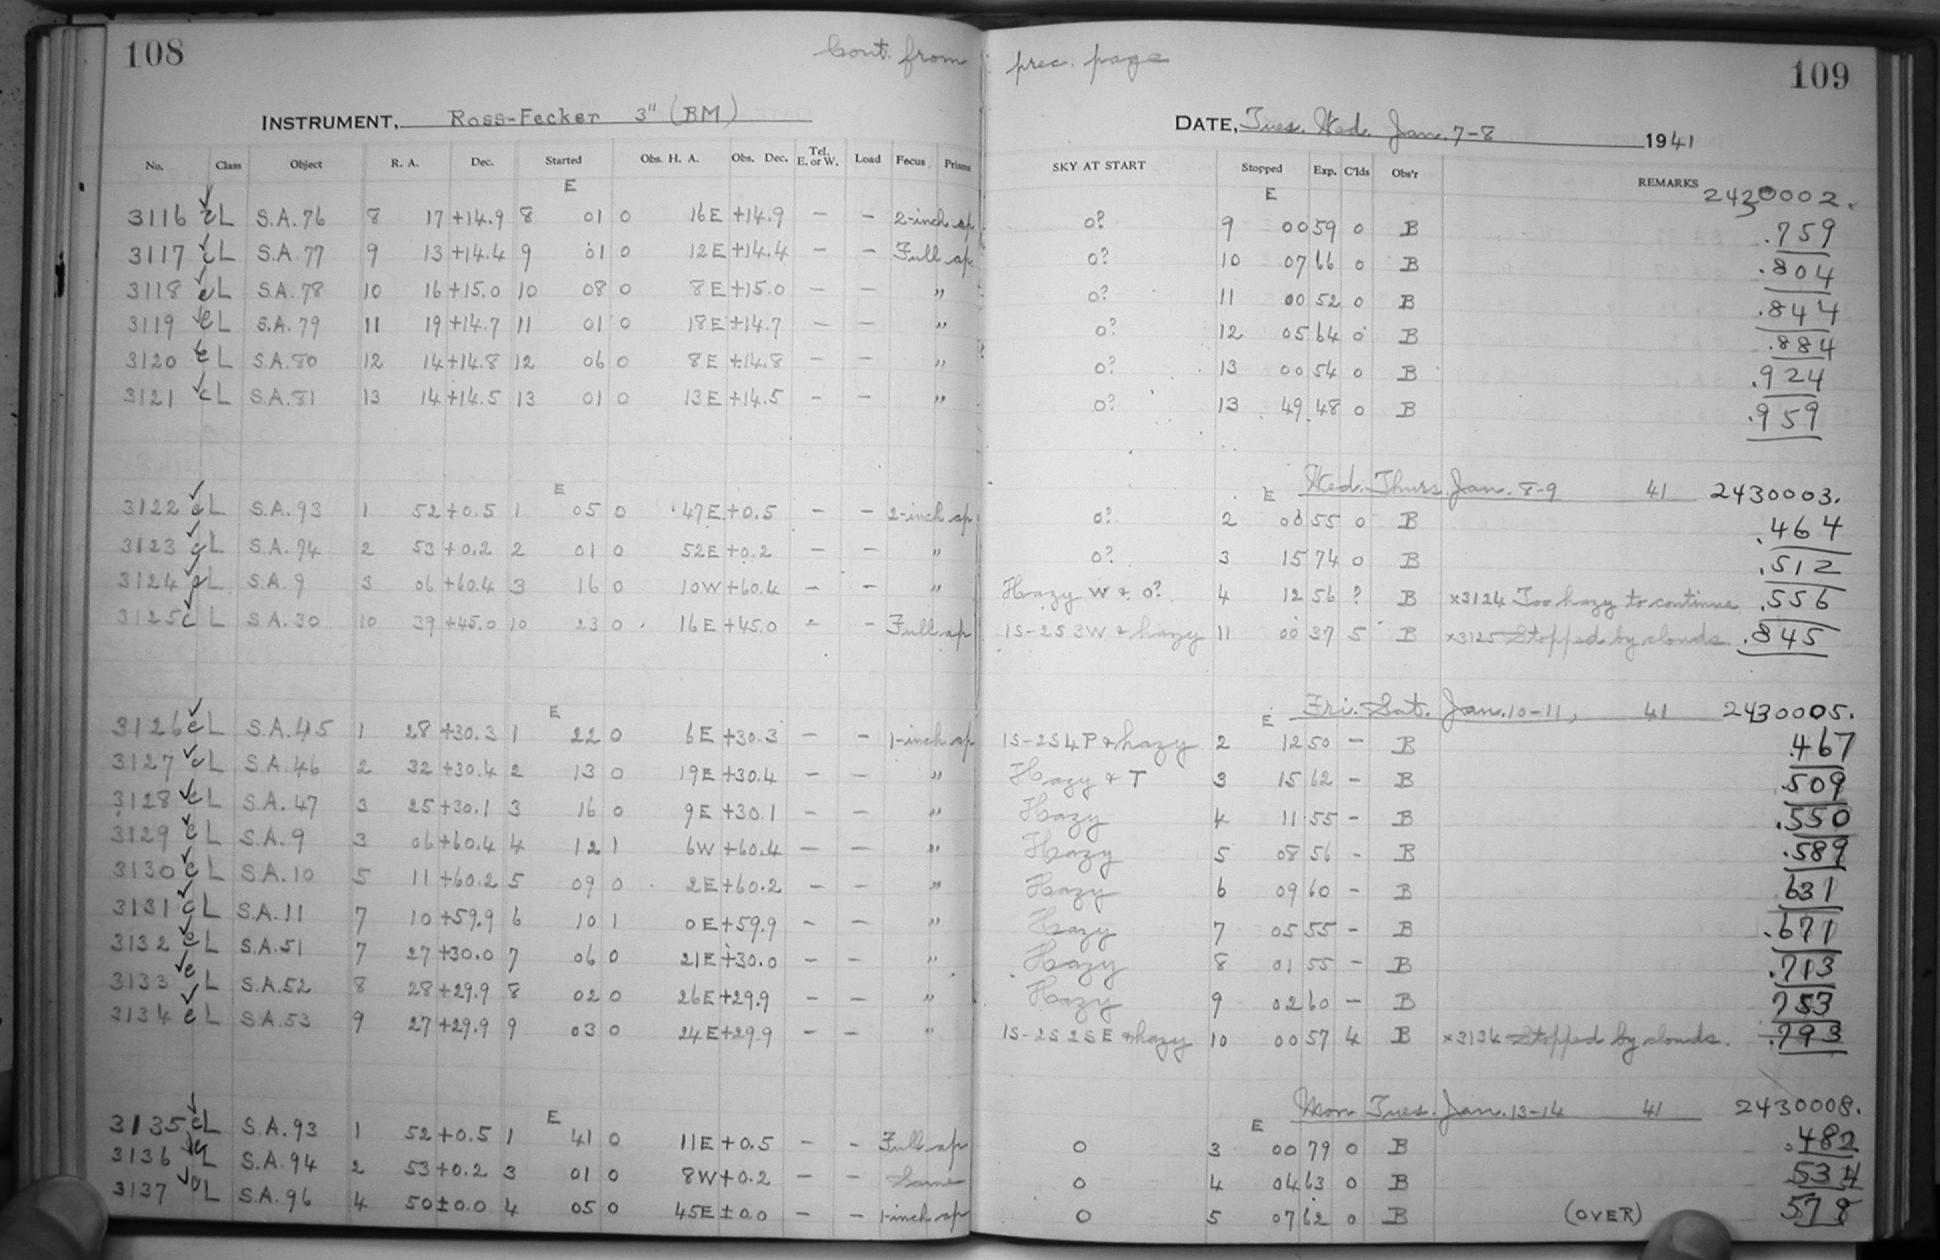 108
Cont. from prec. page
109
INSTRUMENT, Ross-Fecker 3" (BM)
DATE, Tues. Wed. Jan. 7-8 1941
No. Class Object R. A. Dec. Started Obs. H. A. Obs. Dec. Tel. E. or W. Load Focus Prisms SKY AT START Stopped Exp. C'lds Obs'r REMARKS
E E 2430002.
3116 cL S.A. 76 8 17 +14.9 8 01 0 16E +14.9 - - 2-inch ap 0? 9 00 59 0 B .759
3117 cL S.A. 77 9 13 +14.4 9 01 0 12E +14.4 - - Full ap. 0? 10 07 66 0 B .804
3118 cL S.A. 78 10 16 +15.0 10 08 0 8E +15.0 - - " 0? 11 00 52 0 B .844
3119 cL S.A. 79 11 19 +14.7 11 01 0 18E +14.7 - - " 0? 12 05 64 0 B .884
3120 cL S.A. 80 12 14 +14.8 12 06 0 8E +14.8 - - " 0? 13 00 54 0 B .924
3121 cL S.A. 81 13 14 +14.5 13 01 0 13E +14.5 - - " 0? 13 49 48 0 B .959
E E Wed. Thurs. Jan. 8-9 41 2430003.
3122 cL S.A. 93 1 52 +0.5 1 05 0 47E +0.5 - - 2-inch ap 0? 2 00 55 0 B .464
3123 cL S.A. 94 2 53 +0.2 2 01 0 52E +0.2 - - " 0? 3 15 74 0 B .512
3124 cL S.A. 9 3 06 +60.4 3 16 0 10W +60.4 - - " Hazy W & 0? 4 12 56 ? B x3124 Too hazy to continue .556
3125 cL S.A. 30 10 39 +45.0 10 23 0 16E +45.0 - - Full ap 1S-2S 3W & hazy 11 00 37 5 B x3125 Stopped by clouds. .845
E E Fri. Sat. Jan. 10-11, 41 2430005.
3126 cL S.A. 45 1 28 +30.3 1 22 0 6E +30.3 - - 1-inch ap 1S-2S 4P & hazy 2 12 50 - B .467
3127 cL S.A. 46 2 32 +30.4 2 13 0 19E +30.4 - - " Hazy & T 3 15 62 - B .509
3128 cL S.A. 47 3 25 +30.1 3 16 0 9E +30.1 - - " Hazy 4 11 55 - B .550
3129 cL S.A. 9 3 06 +60.4 4 12 1 6W +60.4 - - " Hazy 5 08 56 - B .589
3130 cL S.A. 10 5 11 +60.2 5 09 0 2E +60.2 - - " Hazy 6 09 60 - B .631
3131 cL S.A. 11 7 10 +59.9 6 10 1 0E +59.9 - - " Hazy 7 05 55 - B .671
3132 cL S.A. 51 7 27 +30.0 7 06 0 21E +30.0 - - " Hazy 8 01 55 - B .713
3133 cL S.A. 52 8 28 +29.9 8 02 0 26E +29.9 - - " Hazy 9 02 60 - B 753
3134 cL S.A. 53 9 27 +29.9 9 03 0 24E +29.9 - - " 1S-2S 2SE & hazy 10 00 57 4 B x3134 Stopped by clouds. .793
E E Mon Tues. Jan. 13-14 41 2430008.
3135 cL S.A. 93 1 52 +0.5 1 41 0 11E +0.5 - - Full ap 0 3 00 79 0 B .482
3136 cL S.A. 94 2 53 +0.2 3 01 0 8W +0.2 - - Same 0 4 04 63 0 B 534
3137 cL S.A. 96 4 50 ±0.0 4 05 0 45E ±0.0 - - 1-inch ap 0 5 07 62 0 B (OVER) 578